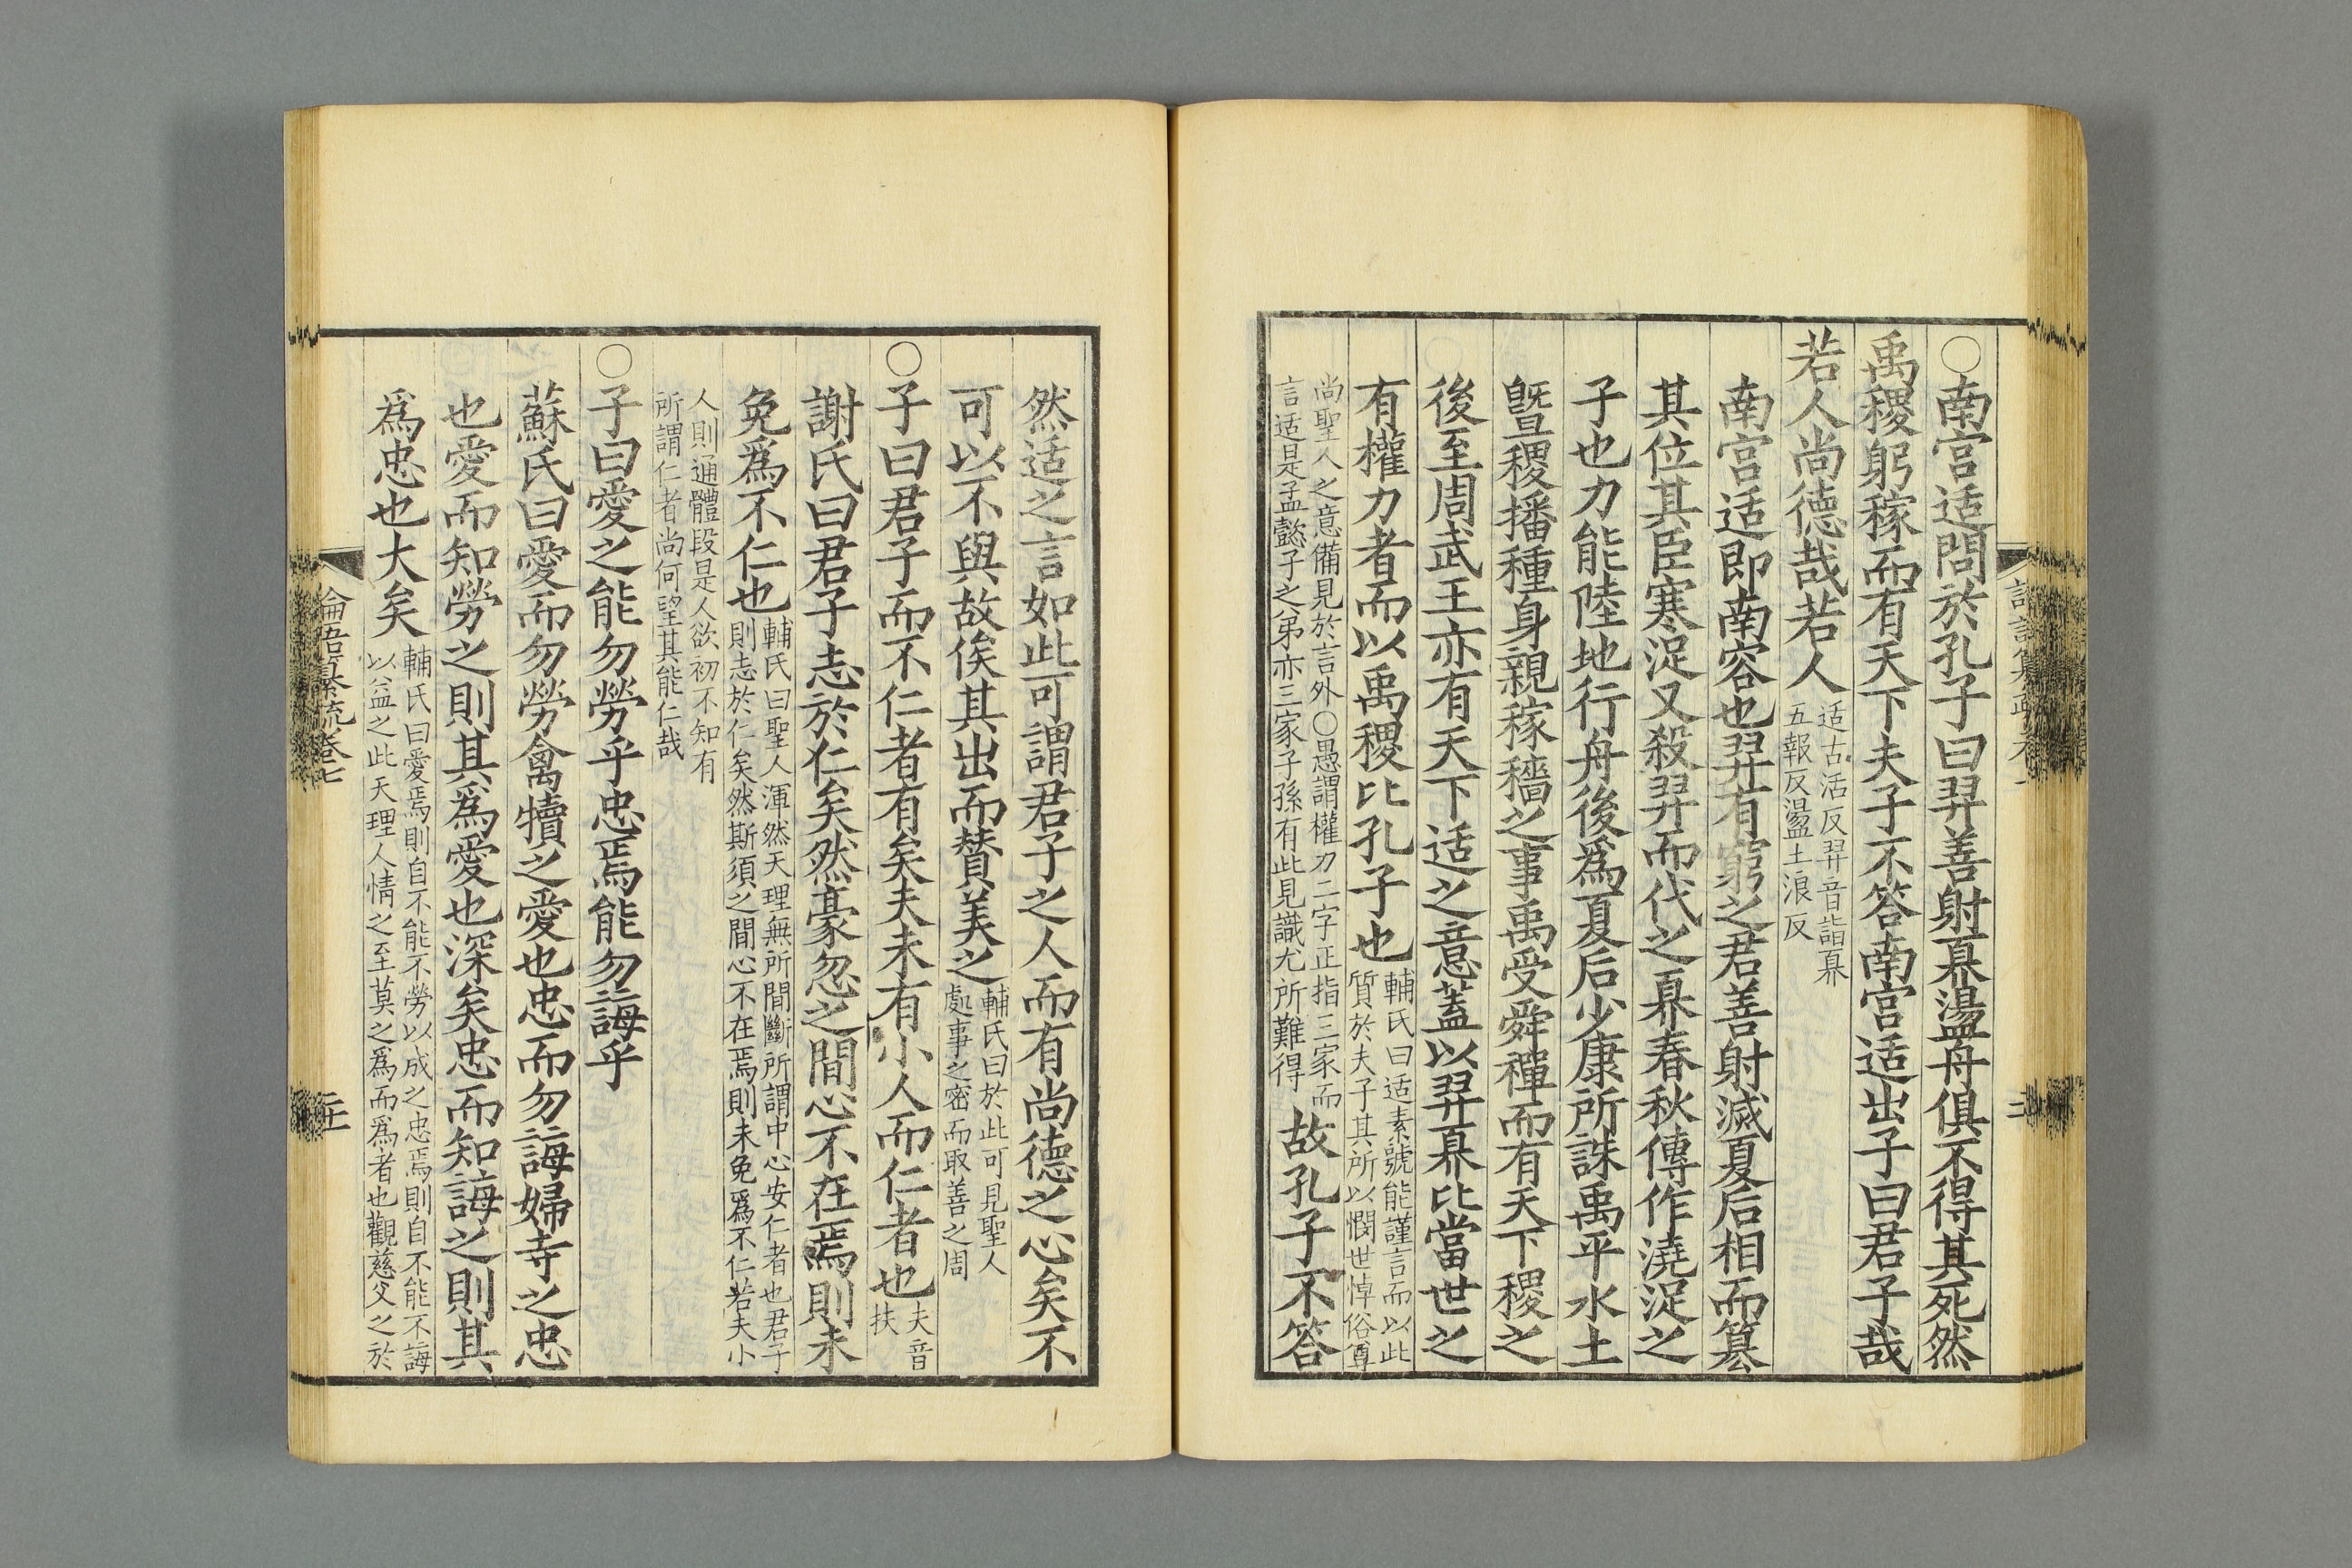 ○南宫适問於孔子曰羿善射奡盪舟俱不得其死然
禹稷躬稼而有天下夫子不答南宫适出子曰君子哉
若人尚德哉若人
适古活反羿音詣奡
五報反盪土浪反
南宫适即南容也羿有窮之君善射滅夏后相而簒
其位其臣寒浞又殺羿而代之奡春秋傳作澆浞之
子也力能陸地行舟後爲夏后少康所誅禹平水土
暨稷播種身親稼穡之事禹受舜禪而有天下稷之
後至周武王亦有天下适之意蓋以羿奡比當世之
有權力者而以禹稷比孔子也
輔氏曰适素號能謹言而以此
質於夫子其所以憫世悼俗尊
尚聖人之意備見於言外○愚謂權力二字正指三家而
言适是孟懿子之弟亦三家子孫有此見識尤所難得
故孔子不答
然适之言如此可謂君子之人而有尚德之心矣不
可以不與故俟其出而賛美之
輔氏曰於此可見聖人
處事之密而取善之周
○子曰君子而不仁者有矣夫未有小人而仁者也
夫音
扶
謝氏曰君子志於仁矣然豪忽之間心不在焉則未
免爲不仁也
輔氏曰聖人渾然天理無所間斷所謂中心安仁者也君子
則志於仁矣然斯須之間心不在焉則未免爲不仁若夫小
人則通體段是人欲初不知有
所謂仁者尚何望其能仁哉
○子曰愛之能勿勞乎忠焉能勿誨乎
蘇氏曰愛而勿勞禽犢之愛也忠而勿誨婦寺之忠
也愛而知勞之則其爲愛也深矣忠而知誨之則其
爲忠也大矣
輔氏曰愛焉則自不能不勞以成之忠焉則自不能不誨
以益之此天理人情之至莫之爲而爲者也觀慈父之於
論語纂疏卷七